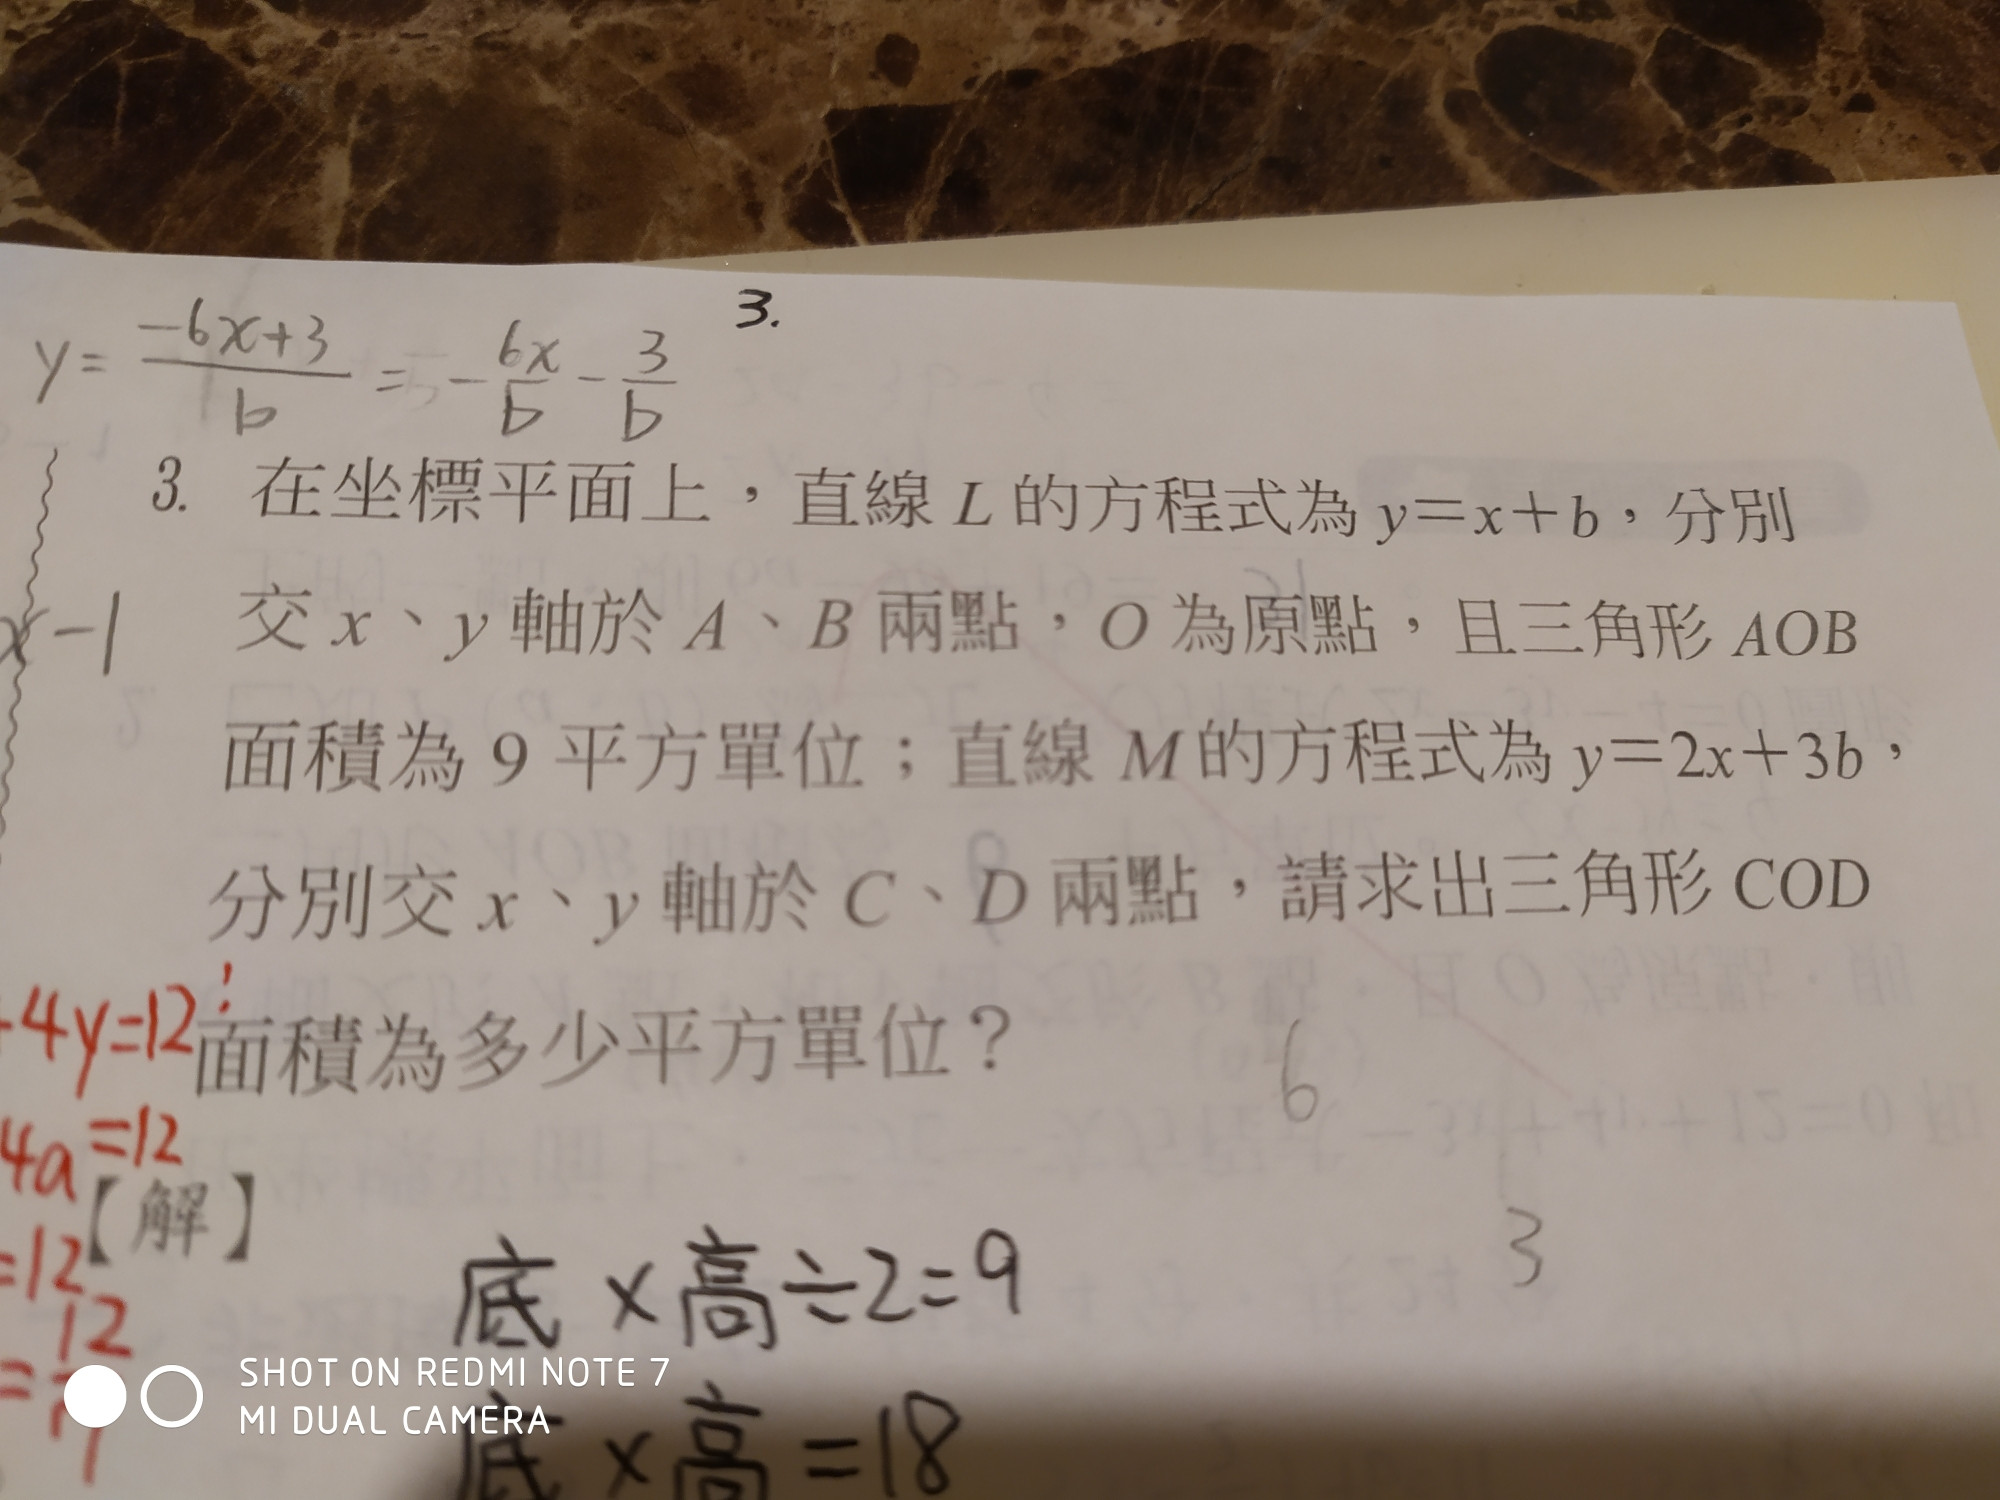 3.
y= -6x+3/b = - 6x/b - 3/b
3. 在坐標平面上，直線 L 的方程式為 y＝x＋b，分別
x-1
交 x、y 軸於 A、B 兩點，O 為原點，且三角形 AOB
面積為 9 平方單位；直線 M 的方程式為 y＝2x＋3b，
分別交 x、y 軸於 C、D 兩點，請求出三角形 COD
+4y=12
面積為多少平方單位？
6
4a=12
【解】
3
=12
底×高÷2=9
=12/7
底×高=18
SHOT ON REDMI NOTE 7
MI DUAL CAMERA